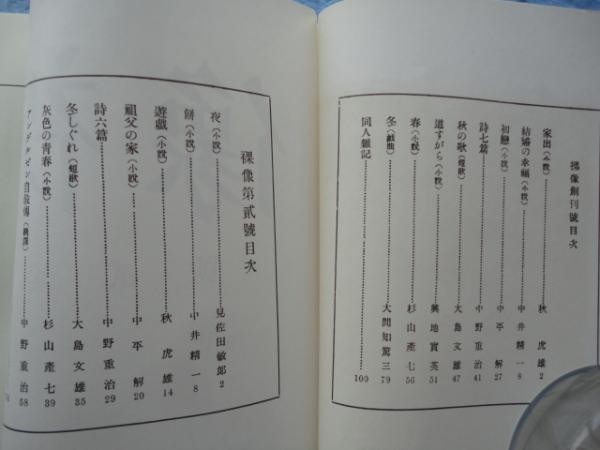 裸像創刊號目次
家出（小說）……秋虎雄 2
結婚の幸福（小說）……中井精一 8
初戀（小說）……中平解 27
詩七篇……中野重治 41
秋の歌（短歌）……大島文雄 47
道すがら（小說）……興地實英 51
春（小說）……杉山產七 56
冬（戲曲）……大間知篤三 79
同人雜記……100
裸像第貳號目次
夜（小說）……見佐田敏郎 2
餅（小說）……中井精一 8
遊戲（小說）……秋虎雄 14
祖父の家（小說）……中平解 20
詩六篇……中野重治 29
冬しぐれ（短歌）……大島文雄 35
灰色の靑春（小說）……杉山產七 39
アンデルゼン自敍傳（飜譯）……中野重治 58